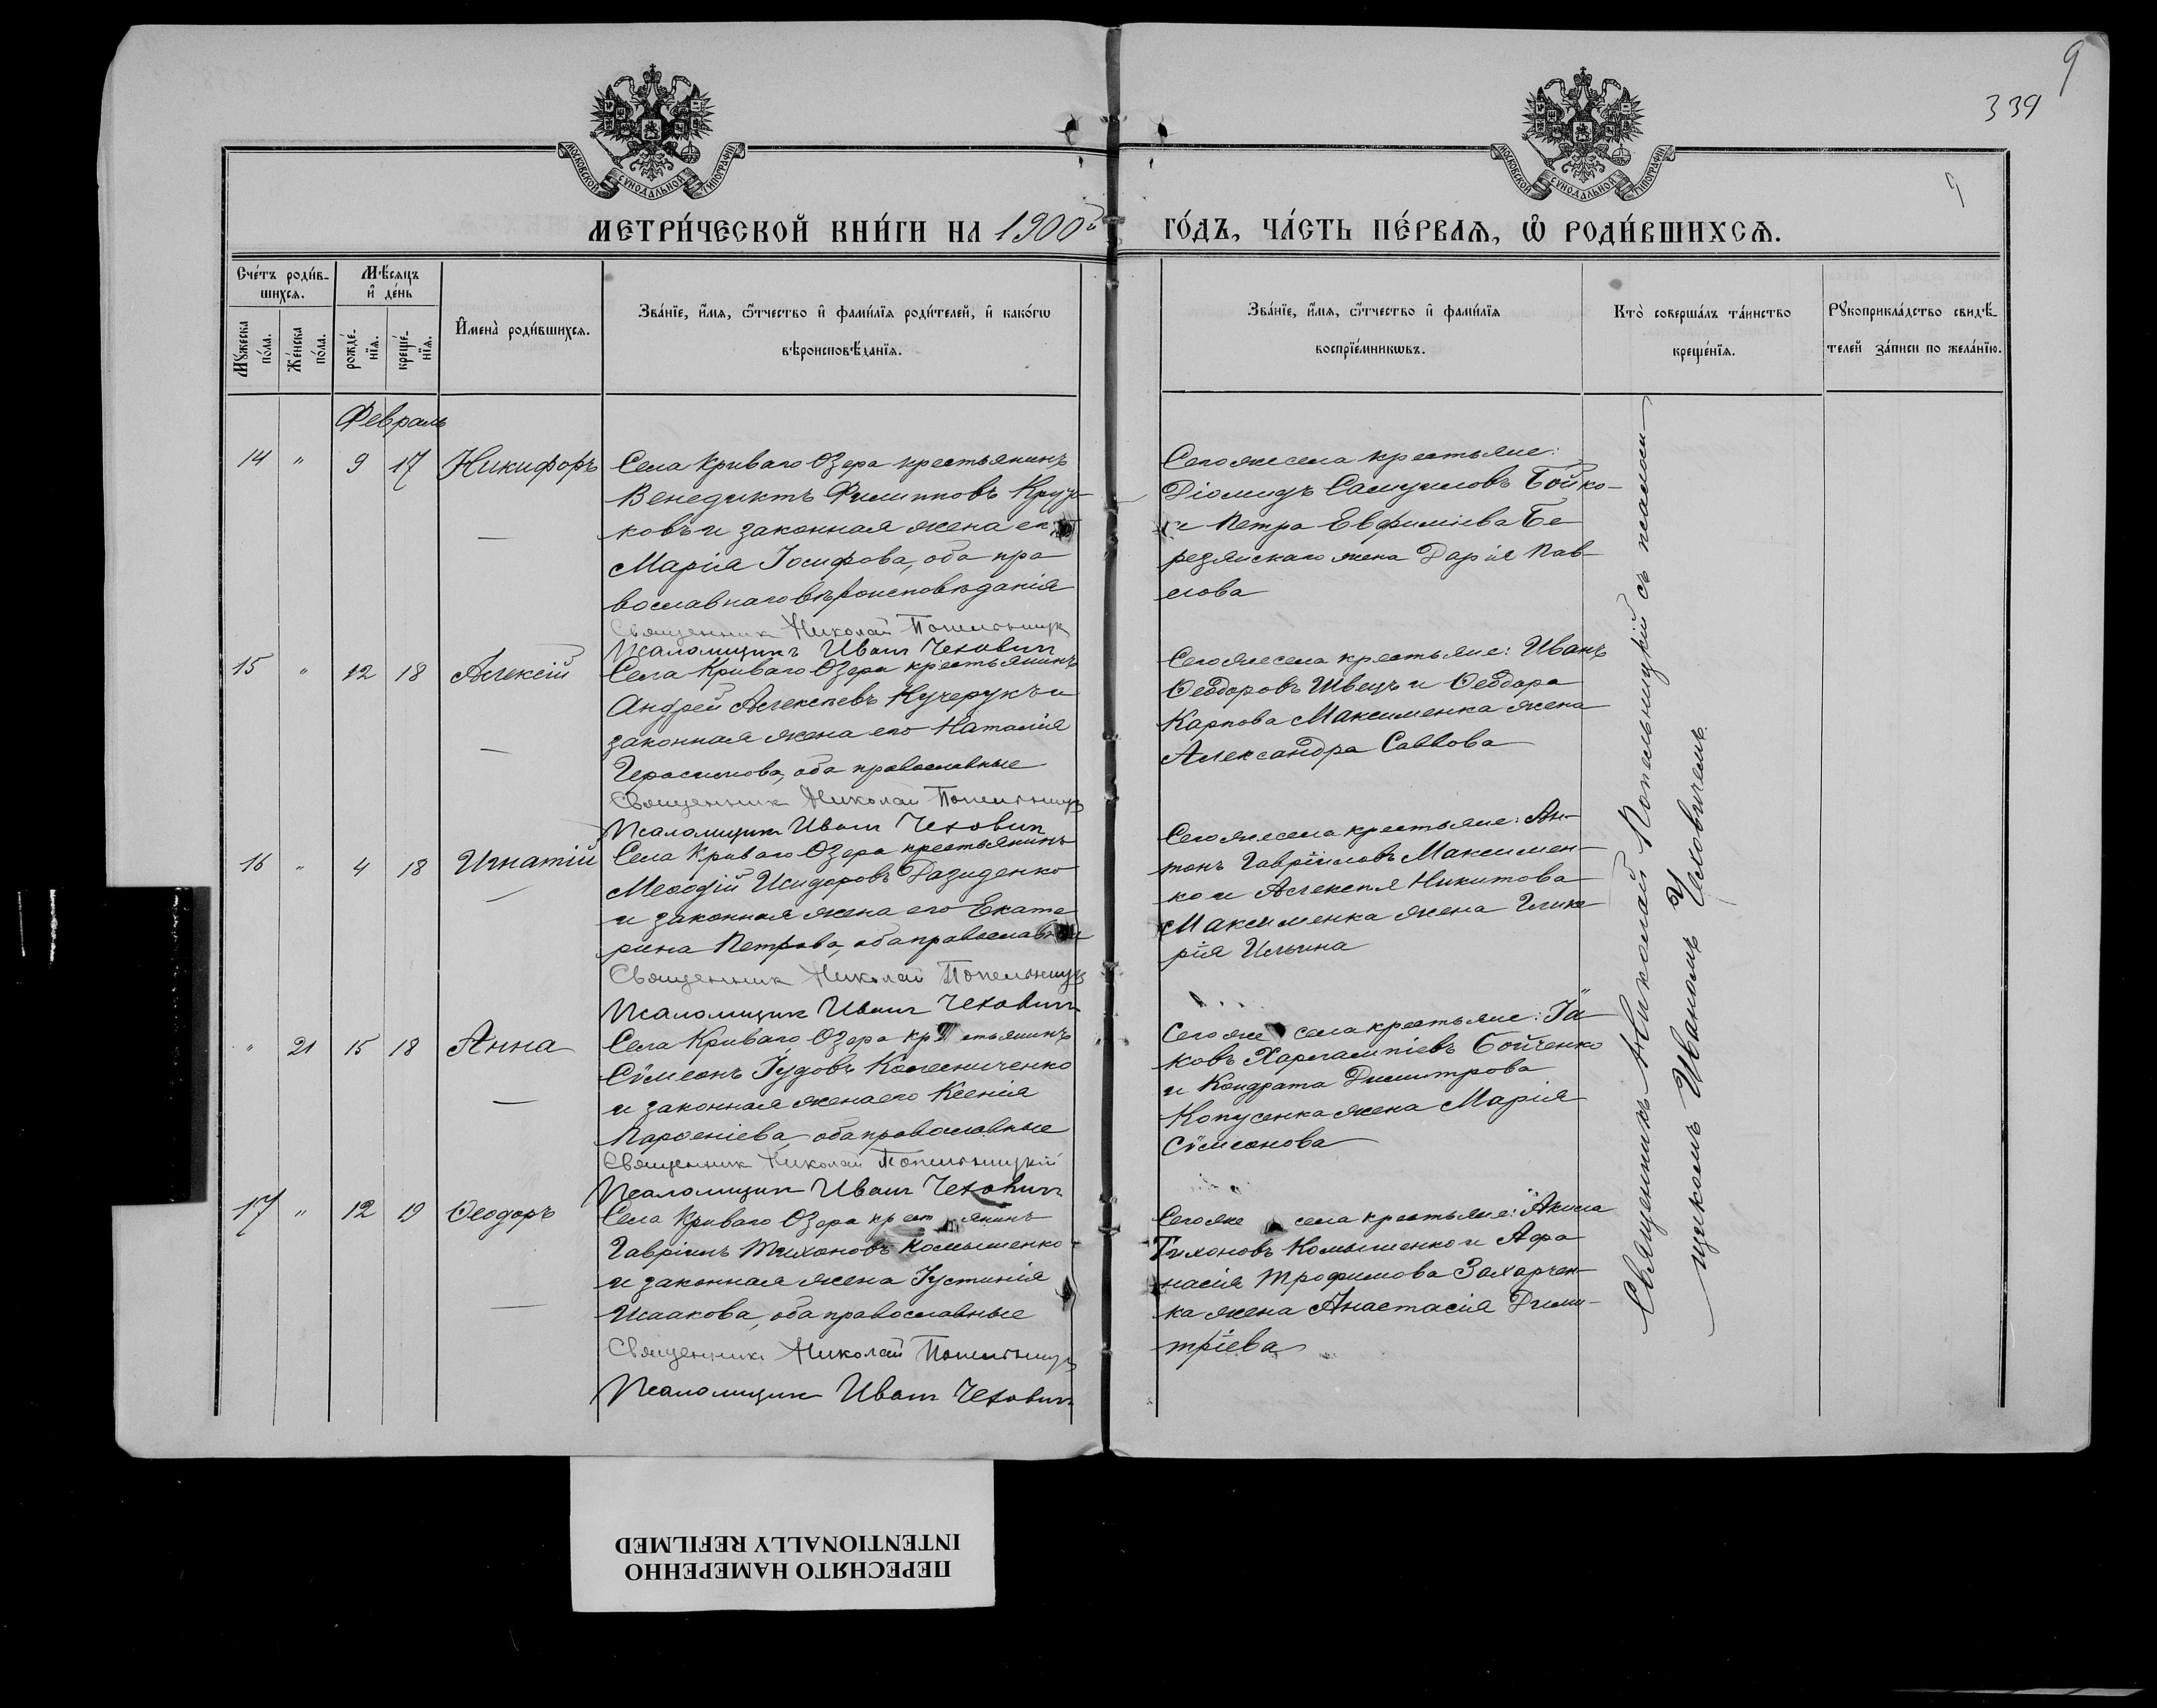 9
339
9
МОСКОВСКОЙ СѴНОДАЛЬНОЙ ТИПОГРАФІИ
МОСКОВСКОЙ СѴНОДАЛЬНОЙ ТИПОГРАФІИ
МЕТРИ́ЧЕСКОЙ КНИ́ГИ НА 1900й ГО́ДЪ, ЧА́СТЬ ПЕ́РВАѦ, Ѡ РОДИ́ВШИХСѦ.
Сче́тъ роди́в-
шихсѧ.
Мѣ́сѧцъ
и҆ де́нь
Мꙋ́жеска по́ла.
Же́нска по́ла.
рожде́-нїѧ.
креще́-нїѧ.
И҆мена̀ роди́вшихсѧ.
Зва́нїе, и҆́мѧ, ѻ҆́тчество и҆ фами́лїѧ роди́телей, и҆ како́гѡ
вѣроисповѣ́данїѧ.
Зва́нїе, и҆́мѧ, ѻ҆́тчество и҆ фами́лїѧ
воспрїе́мникѡвъ.
Кто̀ соверша́лъ та́инство
креще́нїѧ.
Рꙋкоприкла́дство свидѣ́-
телей за́писи по жела́нїю.
Февраль
14 " 9 17 Никифоръ
Села Криваго Озера крестьянинъ
Венедиктъ Филипповъ Круч-
ковъ и законная жена его
Марія Іосифова, оба пра
вославнаго вѣроисповѣданія
Священник Николай Попельницк
Псаломщикъ Иван Чехович
Сего же села крестьяне:
Діомидъ Самуиловъ Бойко
и Петра Евфиміева Бе
резянскаго жена Дарія Пав-
лова
15 " 12 18 Алексій
Села Криваго Озера крестьянинъ
Андрей Алексѣевъ Кучерукъ и
законная жена его Наталія
Герасимова, оба православные
Священник Николай Попельницк
Псаломщик Иван Чехович
Сего же села крестьяне: Иванъ
Ѳеодоровъ Швецъ и Ѳеодора
Карпова Максименка жена
Александра Саввова
16 " 4 18 Игнатій
Села Криваго Озера крестьянинъ
Меѳодій Исидоровъ Дазиденко
и законная жена его Екате
рина Петрова, оба православные
Священник Николай Попельницк
Псаломщик Иван Чехович
Сего же села крестьяне: Ан-
тонъ Гавріиловъ Максимен-
ко и Алексѣя Никитова
Максименка жена Глике
рія Ильина
" 21 15 18 Анна
Села Криваго Озера крестьянинъ
Сѵмеонъ Іудовъ Колесниченко
и законная жена его Ксенія
Парѳеніева, оба православные
Священник Николай Попельницкій
Псаломщик Иван Чехович
Сего же села крестьяне: Іа
ковъ Харлампіевъ Бойченко
и Кондрата Димитрова
Копусенка жена Марія
Сѵмеонова
17 " 12 19 Ѳеодоръ
Села Криваго Озера крестьянинъ
Гавріилъ Тихоновъ Комышенко
и законная жена Іустинія
Исаакова, оба православные
Священник Николай Попельницк
Псаломщик Иван Чехович
Сего же села крестьяне: Акила
Тихоновъ Комышенко и Аѳа
насія Трофимова Захарчен-
ка жена Анастасія Дими-
тріева
Священникъ Николай Попельницкій съ псалом-
щикомъ Иваномъ Чеховичемъ
ПЕРЕСНЯТО НАМЕРЕННО
INTENTIONALLY REFILMED